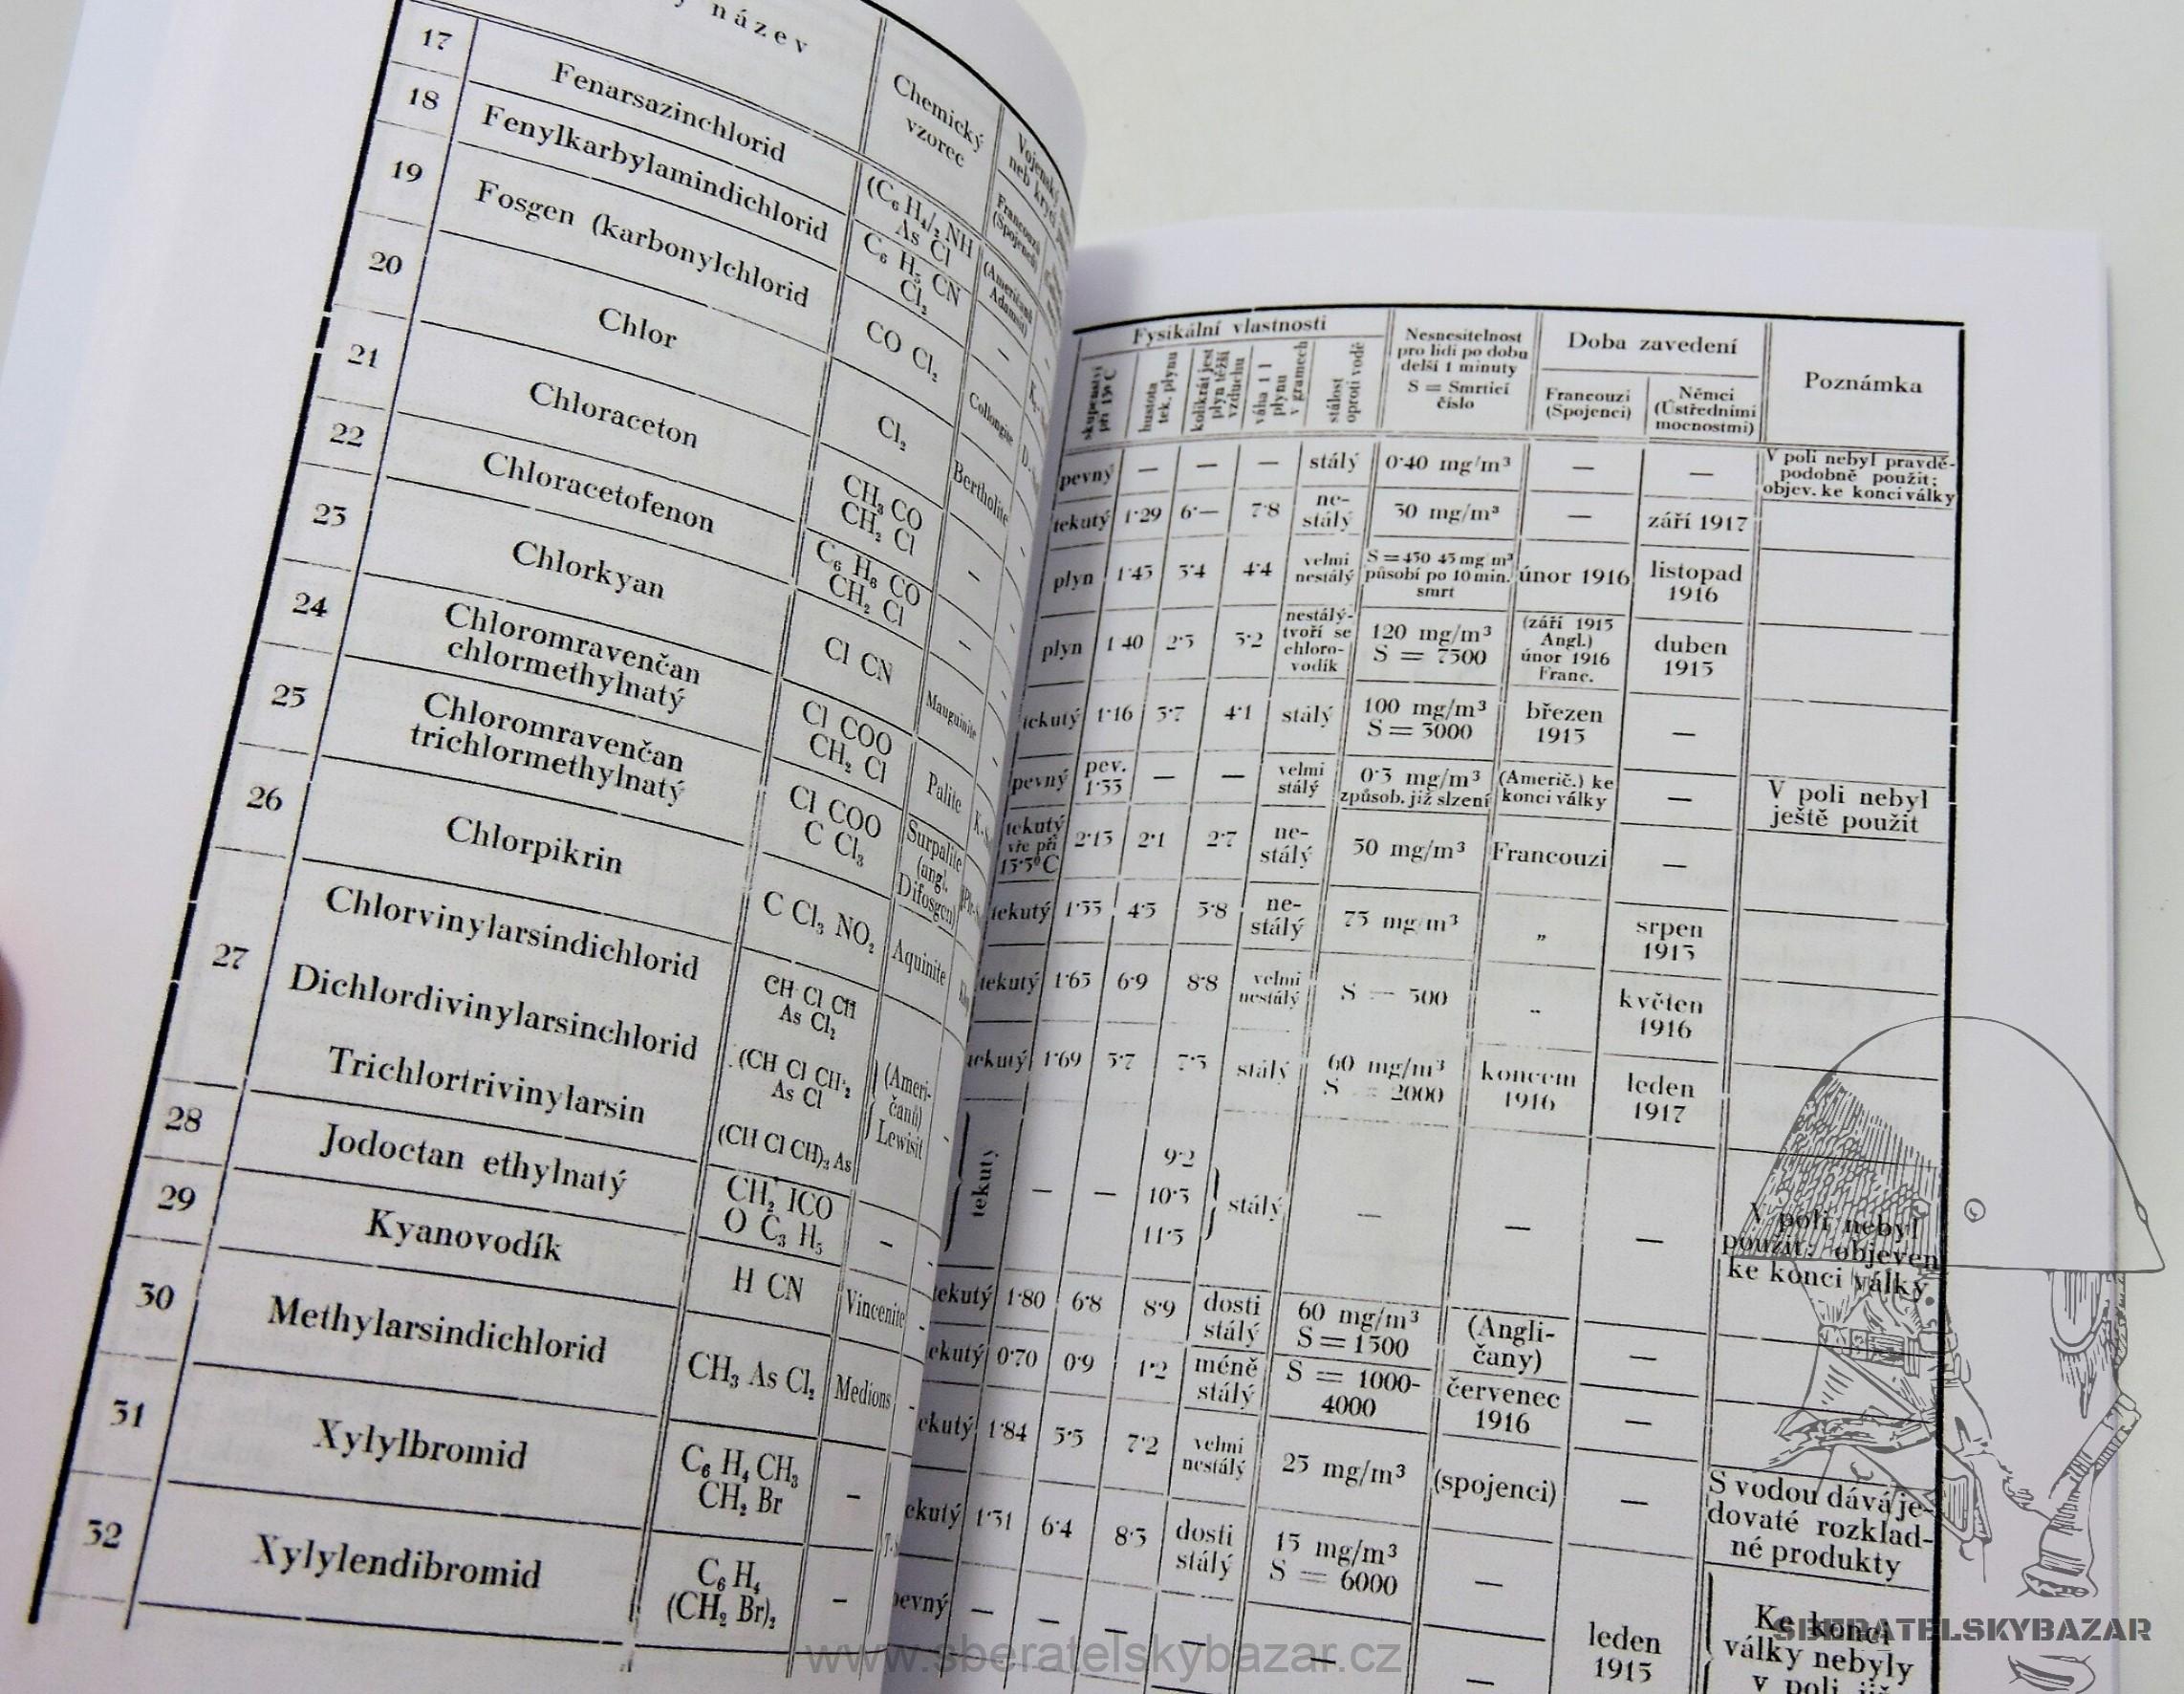 název
Chemický
vzorec
17
Fenarsazinchlorid
(C₆ H₄/₂ NH
As Cl
(Američané
18
Fenylkarbylamindichlorid
C₆ H₅ CN
Cl₂
–
19
Fosgen (karbonylchlorid
CO Cl₂
Collongite
20
Chlor
Cl₂
Bertholite
21
Chloraceton
CH₃ CO
CH₂ Cl
–
22
Chloracetofenon
C₆ H₆ CO
CH₂ Cl
–
23
Chlorkyan
Cl CN
Mauguinite
24
Chloromravenčan
chlormethylnatý
Cl COO
CH₂ Cl
Palite
25
Chloromravenčan
trichlormethylnatý
Cl COO
C Cl₃
Surpalite
(angl.
Difosgen)
26
Chlorpikrin
C Cl₃ NO₂
Aquinite
27
Chlorvinylarsindichlorid
CH Cl CH
As Cl₂
Dichlordivinylarsinchlorid
(CH Cl CH)₂
As Cl
Trichlortrivinylarsin
(CH Cl CH)₃ As
(Ameri-
čanů)
Lewisit
28
Jodoctan ethylnatý
CH₂ ICO
O C₃ H₅
–
29
Kyanovodík
H CN
Vincenite
30
Methylarsindichlorid
CH₃ As Cl₂
Medions
31
Xylylbromid
C₆ H₄ CH₃
CH₂ Br
–
32
Xylylendibromid
C₆ H₄
(CH₂ Br)₂
–
Fysikální vlastnosti
skupenství
při 15° C
hustota
tek. plynu
kolikrát jest
plyn těžší
vzduchu
váha 1 l
plynu
v gramech
stálost
oproti vodě
Nesnesitelnost
pro lidi po dobu
delší 1 minuty
S = Smrtící
číslo
Doba zavedení
Francouzi
(Spojenci)
Němci
(Ústředními
mocnostmi)
Poznámka
pevný — — — stálý 0·40 mg/m³ — —
V poli nebyl pravdě-
podobně použit;
objev. ke konci války
tekutý 1·29 6·— 7·8 ne-
stálý
30 mg/m³ — září 1917
plyn 1·43 3·4 4·4 velmi
nestálý
S = 450 45 mg m³
působí po 10 min.
smrt
únor 1916
listopad
1916
plyn 1·40 2·5 3·2
nestálý-
tvoří se
chloro-
vodík
120 mg/m³
S = 7500
(září 1915
Angl.)
únor 1916
Franc.
duben
1915
tekutý 1·16 3·7 4·1 stálý
100 mg/m³
S = 3000
březen
1915
—
pevný pev.
1·33
— — velmi
stálý
0·3 mg/m³
způsob. již slzení
(Americ.) ke
konci války
—
V poli nebyl
ještě použit
tekutý
vře při
15·5° C
2·13 2·1 2·7 ne-
stálý
50 mg/m³ Francouzi —
tekutý 1·53 4·5 5·8 ne-
stálý
75 mg/m³ „
srpen
1915
tekutý 1·65 6·9 8·8 velmi
nestálý
S = 500 „
květen
1916
tekutý 1·69 5·7 7·3 stálý
60 mg/m³
S = 2000
koncem
1916
leden
1917
tekutý
— —
9·2
10·3
11·3
stálý
— — —
V poli nebyl
použit; objeven
ke konci války
tekutý 1·80 6·8 8·9 dosti
stálý
60 mg/m³
S = 1500
(Angli-
čany)
—
ekutý 0·70 0·9 1·2 méně
stálý
S = 1000-
4000
červenec
1916
—
ekutý 1·84 5·5 7·2 velmi
nestálý
25 mg/m³ (spojenci) —
S vodou dává je-
dovaté rozklad-
né produkty
ekutý 1·31 6·4 8·3 dosti
stálý
15 mg/m³
S = 6000
—
leden
1915
pevný — — — — — —
Ke konci
války nebyly
v poli již
SBERATELSKYBAZAR
www.sberatelskybazar.cz